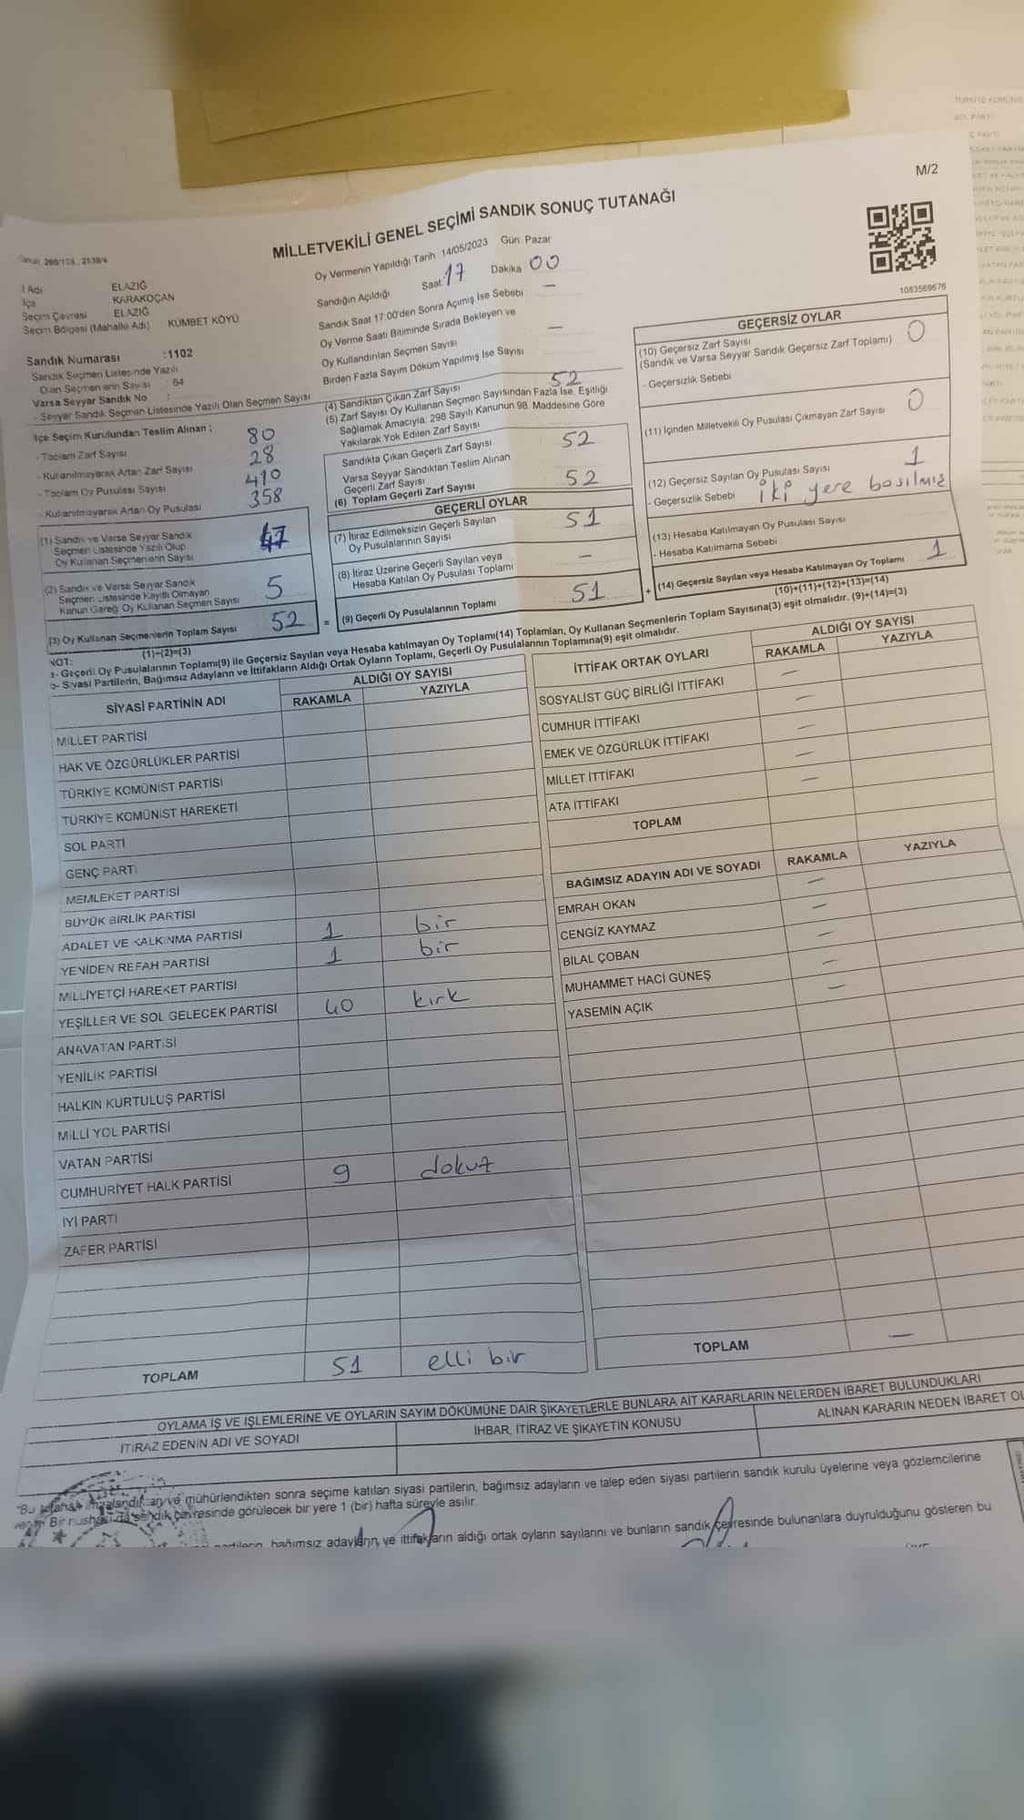 M/2
MİLLETVEKİLİ GENEL SEÇİMİ SANDIK SONUÇ TUTANAĞI
1083569676
İl Adı ELAZIĞ
İlçe KARAKOÇAN
Seçim Çevresi ELAZIĞ
Seçim Bölgesi (Mahalle Adı) KÜMBET KÖYÜ
Sandık Numarası :1102
Sandık Seçmen Listesinde Yazılı
Olan Seçmenlerin Sayısı 64
Varsa Seyyar Sandık No :
- Seyyar Sandık Seçmen Listesinde Yazılı Olan Seçmen Sayısı
İlçe Seçim Kurulundan Teslim Alınan :
- Toplam Zarf Sayısı 80
- Kullanılmayarak Artan Zarf Sayısı 28
- Toplam Oy Pusulası Sayısı 410
- Kullanılmayarak Artan Oy Pusulası 358
(1) Sandık ve Varsa Seyyar Sandık
Seçmen Listesinde Yazılı Olup
Oy Kullanan Seçmenlerin Sayısı 47
(2) Sandık ve Varsa Seyyar Sandık
Seçmen Listesinde Kayıtlı Olmayan
Kanun Gereği Oy Kullanan Seçmen Sayısı 5
(3) Oy Kullanan Seçmenlerin Toplam Sayısı 52
(1)+(2)=(3)
Oy Vermenin Yapıldığı Tarih 14/05/2023 Gün: Pazar
Sandığın Açıldığı Saat: 17 Dakika 00
Sandık Saat 17:00'den Sonra Açımış İse Sebebi —
Oy Verme Saati Bitiminde Sırada Bekleyen ve
Oy Kullandırılan Seçmen Sayısı —
Birden Fazla Sayım Döküm Yapılmış İse Sayısı
(4) Sandıktan Çıkan Zarf Sayısı 52
(5) Zarf Sayısı Oy Kullanan Seçmen Sayısından Fazla İse, Eşitliği
Sağlamak Amacıyla, 298 Sayılı Kanunun 98. Maddesine Göre
Yakılarak Yok Edilen Zarf Sayısı
Sandıkta Çıkan Geçerli Zarf Sayısı 52
Varsa Seyyar Sandıktan Teslim Alınan
Geçerli Zarf Sayısı
(6) Toplam Geçerli Zarf Sayısı 52
GEÇERLİ OYLAR
(7) İtiraz Edilmeksizin Geçerli Sayılan
Oy Pusulalarının Sayısı 51
(8) İtiraz Üzerine Geçerli Sayılan veya
Hesaba Katılan Oy Pusulası Toplamı —
= (9) Geçerli Oy Pusulalarının Toplamı 51
GEÇERSİZ OYLAR
(10) Geçersiz Zarf Sayısı
(Sandık ve Varsa Seyyar Sandık Geçersiz Zarf Toplamı) 0
- Geçersizlik Sebebi
(11) İçinden Milletvekili Oy Pusulası Çıkmayan Zarf Sayısı 0
(12) Geçersiz Sayılan Oy Pusulası Sayısı 1
- Geçersizlik Sebebi iki yere basılmış
(13) Hesaba Katılmayan Oy Pusulası Sayısı
- Hesaba Katılmama Sebebi
+ (14) Geçersiz Sayılan veya Hesaba Katılmayan Oy Toplamı 1
(10)+(11)+(12)+(13)=(14)
NOT:
a- Geçerli Oy Pusulalarının Toplamı(9) ile Geçersiz Sayılan veya Hesaba katılmayan Oy Toplamı(14) Toplamları, Oy Kullanan Seçmenlerin Toplam Sayısına(3) eşit olmalıdır. (9)+(14)=(3)
b- Siyasi Partilerin, Bağımsız Adayların ve İttifakların Aldığı Ortak Oyların Toplamı, Geçerli Oy Pusulalarının Toplamına(9) eşit olmalıdır.
SİYASİ PARTİNİN ADI ALDIĞI OY SAYISI
RAKAMLA YAZIYLA
MİLLET PARTİSİ
HAK VE ÖZGÜRLÜKLER PARTİSİ
TÜRKİYE KOMÜNİST PARTİSİ
TÜRKİYE KOMÜNİST HAREKETİ
SOL PARTİ
GENÇ PARTİ
MEMLEKET PARTİSİ
BÜYÜK BİRLİK PARTİSİ
ADALET VE KALKINMA PARTİSİ 1 bir
YENİDEN REFAH PARTİSİ 1 bir
MİLLİYETÇİ HAREKET PARTİSİ
YEŞİLLER VE SOL GELECEK PARTİSİ 40 kırk
ANAVATAN PARTİSİ
YENİLİK PARTİSİ
HALKIN KURTULUŞ PARTİSİ
MİLLİ YOL PARTİSİ
VATAN PARTİSİ
CUMHURİYET HALK PARTİSİ 9 dokuz
İYİ PARTİ
ZAFER PARTİSİ
TOPLAM 51 elli bir
İTTİFAK ORTAK OYLARI ALDIĞI OY SAYISI
RAKAMLA YAZIYLA
SOSYALİST GÜÇ BİRLİĞİ İTTİFAKI —
CUMHUR İTTİFAKI —
EMEK VE ÖZGÜRLÜK İTTİFAKI —
MİLLET İTTİFAKI —
ATA İTTİFAKI —
TOPLAM
BAĞIMSIZ ADAYIN ADI VE SOYADI RAKAMLA YAZIYLA
EMRAH OKAN —
CENGİZ KAYMAZ —
BİLAL ÇOBAN —
MUHAMMET HACİ GÜNEŞ —
YASEMİN AÇIK —
TOPLAM —
OYLAMA İŞ VE İŞLEMLERİNE VE OYLARIN SAYIM DÖKÜMÜNE DAİR ŞİKAYETLERLE BUNLARA AİT KARARLARIN NELERDEN İBARET BULUNDUKLARI
İTİRAZ EDENİN ADI VE SOYADI İHBAR, İTİRAZ VE ŞİKAYETİN KONUSU ALINAN KARARIN NEDEN İBARET OL
"Bu tutanak imzalandıktan ve mühürlendikten sonra seçime katılan siyasi partilerin, bağımsız adayların ve talep eden siyasi partilerin sandık kurulu üyelerine veya gözlemcilerine
Bir nüshası da sandık çevresinde görülecek bir yere 1 (bir) hafta süreyle asılır.
partilerin, bağımsız adayların ve ittifakların aldığı ortak oyların sayılarını ve bunların sandık çevresinde bulunanlara duyrulduğunu gösteren bu